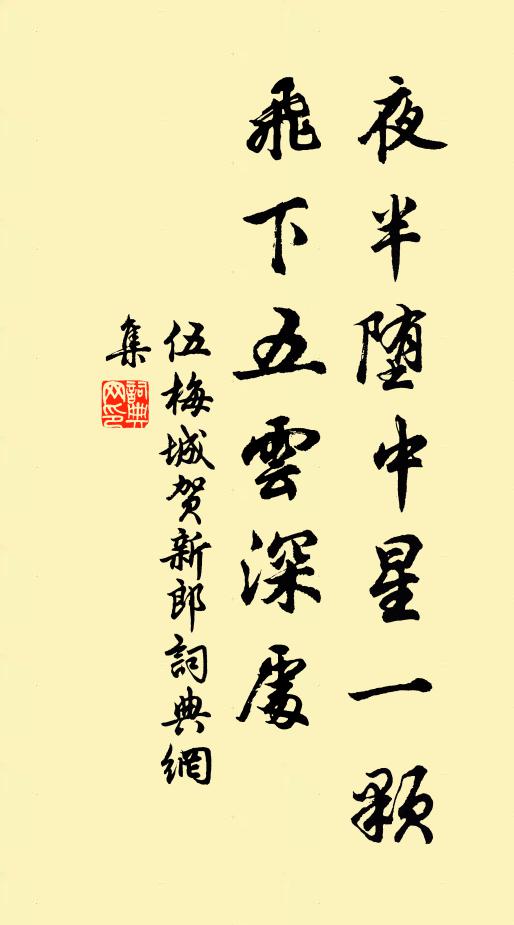 夜半堕中星一颗
飛下五雲深處
伍梅城贺新郎詞典網
集
詞典網印